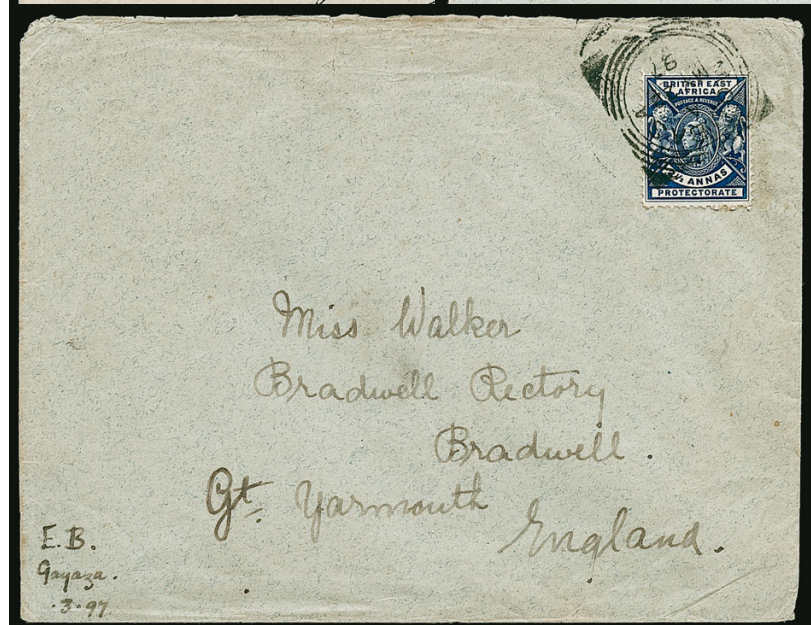 97
BRITISH EAST
AFRICA
POSTAGE & REVENUE
2½ ANNAS
PROTECTORATE
Miss Walker
Bradwell Rectory
Bradwell.
Gt. Yarmouth
England.
E.B.
Gayaza.
.3.97